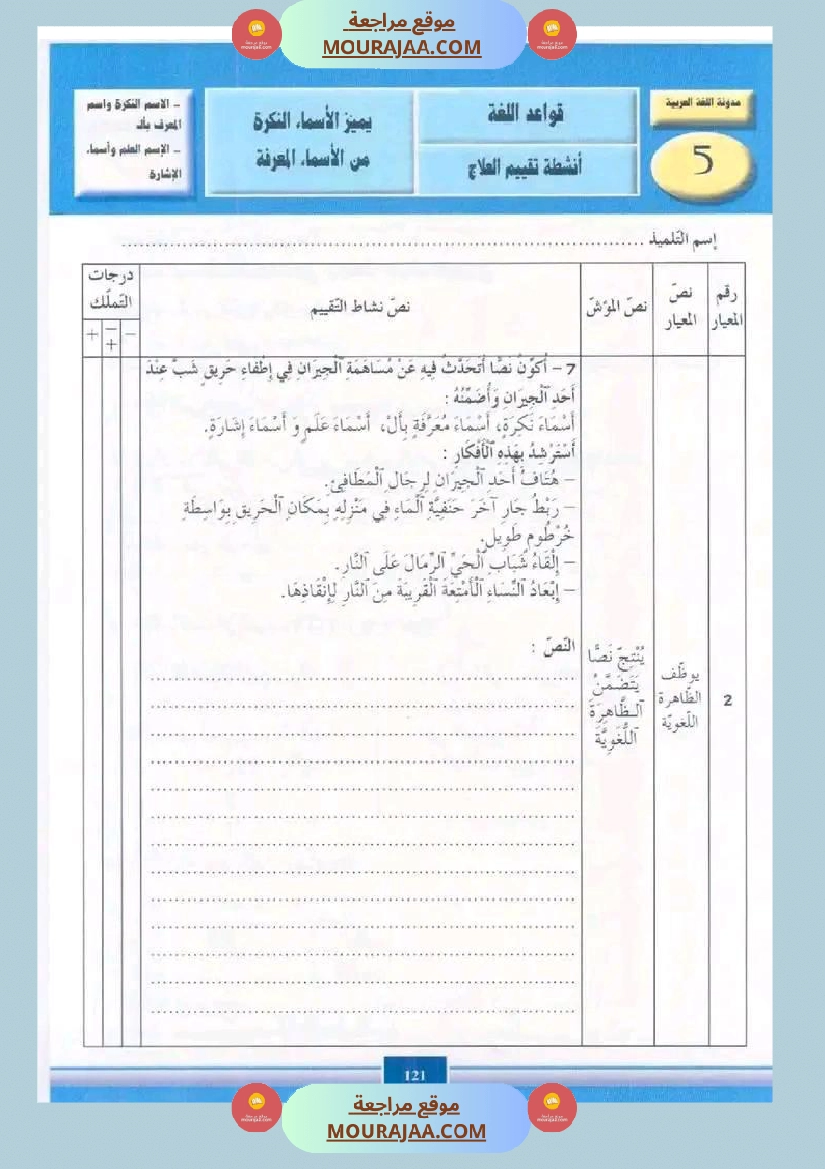 موقع مراجعة
MOURAJAA.COM
مدونة اللغة العربية
5
قواعد اللغة
أنشطة تقييم العلاج
يميز الأسماء النكرة
من الأسماء المعرفة
– الاسم النكرة واسم
المعرف بأل
– الإسم العلم وأسماء
الإشارة
إسم التّلميذ
رقم المعيار
نصّ المعيار
نصّ المؤشّ
نصّ نشاط التّقييم
درجات التّملّك
– –+ +
7 – أُكَوِّنُ نَصًّا أَتَحَدَّثُ فِيهِ عَنْ مُسَاهَمَةِ ٱلْجِيرَانِ فِي إِطْفَاءِ حَرِيقٍ شَبَّ عِنْدَ
أَحَدِ ٱلْجِيرَانِ وَأُضَمِّنُهُ :
أَسْمَاءَ نَكِرَةٍ، أَسْمَاءَ مُعَرَّفَةٍ بِأَلْ، أَسْمَاءَ عَلَمٍ وَ أَسْمَاءَ إِشَارَةٍ.
أَسْتَرْشِدُ بِهَذِهِ ٱلْأَفْكَارِ :
– هُتَافُ أَحَدِ ٱلْجِيرَانِ لِرِجَالِ ٱلْمَطَافِئِ.
– رَبْطُ جَارٍ آخَرَ حَنَفِيَّةَ ٱلْمَاءِ فِي مَنْزِلِهِ بِمَكَانِ ٱلْحَرِيقِ بِوَاسِطَةِ
خُرْطُومٍ طَوِيلٍ.
– إِلْقَاءُ شَبَابِ ٱلْحَيِّ ٱلرِّمَالَ عَلَى ٱلنَّارِ.
– إِبْعَادُ ٱلنِّسَاءِ ٱلْأَمْتِعَةَ ٱلْقَرِيبَةَ مِنَ ٱلنَّارِ لِإِنْقَاذِهَا.
النّصّ :
2
يوظّف
الظّاهرة
اللّغويّة
يُنْتِجُ نَصًّا
يَتَضَمَّنُ
ٱلظَّاهِرَةَ
ٱللُّغَوِيَّةَ
121
موقع مراجعة
MOURAJAA.COM